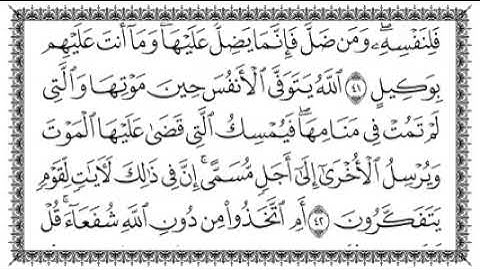 فَلِنَفْسِهِۦ ۖ وَمَن ضَلَّ فَإِنَّمَا يَضِلُّ عَلَيْهَا ۖ وَمَآ أَنتَ عَلَيْهِم
بِوَكِيلٍ ﴿٤١﴾ ٱللَّهُ يَتَوَفَّى ٱلْأَنفُسَ حِينَ مَوْتِهَا وَٱلَّتِى
لَمْ تَمُتْ فِى مَنَامِهَا ۖ فَيُمْسِكُ ٱلَّتِى قَضَىٰ عَلَيْهَا ٱلْمَوْتَ
وَيُرْسِلُ ٱلْأُخْرَىٰٓ إِلَىٰٓ أَجَلٍ مُّسَمًّى ۚ إِنَّ فِى ذَٰلِكَ لَـَٔايَـٰتٍ لِّقَوْمٍ
يَتَفَكَّرُونَ ﴿٤٢﴾ أَمِ ٱتَّخَذُوا۟ مِن دُونِ ٱللَّهِ شُفَعَآءَ ۚ قُلْ